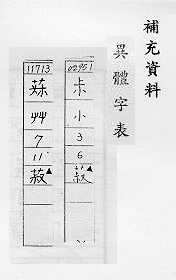 補充資料
異體字表
02951
尗
小
3
6
11713
艸
7
11
菽